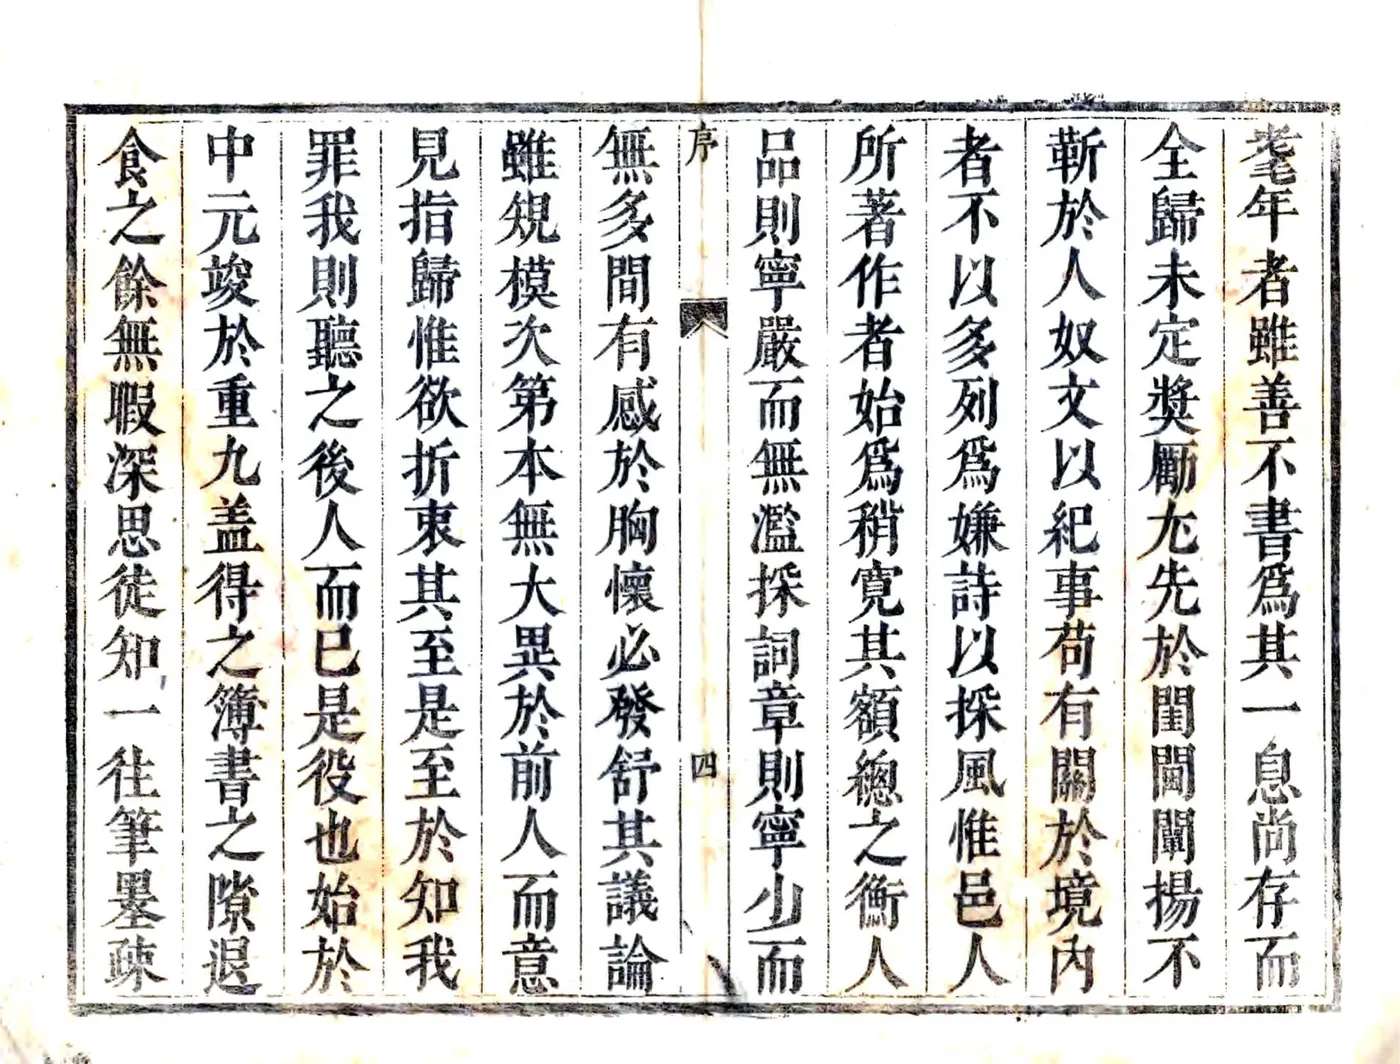 耄年者雖善不書爲其一息尚存而
全歸未定獎勵尤先於閨閫闡揚不
靳於人奴文以紀事苟有關於境內
者不以多列爲嫌詩以採風惟邑人
所著作者始爲稍寬其額總之衡人
品則寧嚴而無濫採詞章則寧少而
序
四
無多間有感於胸懷必發舒其議論
雖規模次第本無大異於前人而意
見指歸惟欲折衷其至是至於知我
罪我則聽之後人而已是役也始於
中元竣於重九盖得之簿書之隙退
食之餘無暇深思徒知一往筆墨疎